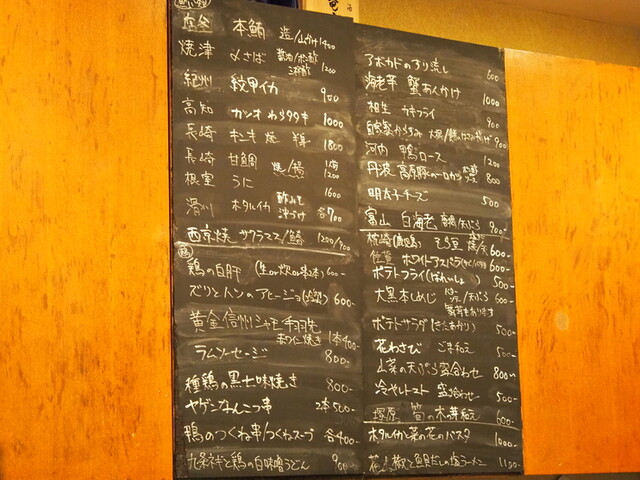 本鮪 造/山かけ 1400
焼津 〆さば 1200
紀州 紋甲イカ 900
高知 カツオ わらタタキ 1000
長崎 キンキ 焼 半身 1800
長崎 甘鯛 焼/
根室 うに 1600
滑川 ホタルイカ 酢みそ 沖づけ 各700
西京焼 サクラマス/鰆 1200/900
鶏
鶏の白肝 600-
ズリとハツのアヒージョ 600-
黄金信州シャモ手羽先 1本400-
ラムソーセージ 800-
種鶏の黒七味焼き 800-
ヤゲンなんこつ串 2本500-
鴨のつくね串/つくねスープ 各400-
九条ネギと鶏の白味噌うどん 900
アボカドのすり流し 600
海老芋 蟹あんかけ 1000
相生 カキフライ 900
自家製からすみ 900
河内 鴨ロース 1200
丹波 高原豚 800
明太子チーズ 500
富山 白海老 /天ぷら 900-
そら豆 焼/天 600-
佐賀 ホワイトアスパラ 600-
ポテトフライ 500-
大黒本しめじ バターソテー/天ぷら 600-
ポテトサラダ(きたあかり) 500-
花わさび ごま和え 500-
山菜の天ぷら盛合わせ 800-
冷やしトマト 盛合わせ 500-
塚原 筍の木の芽和え 600-
ホタルイカと菜の花のパスタ 1000-
花山椒と魚貝だしの塩ラーメン 1100-